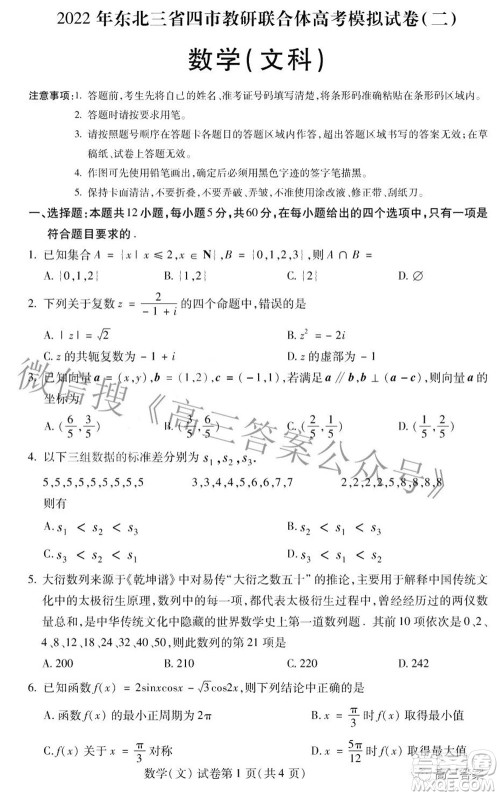 2022 年东北三省四市教研联合体高考模拟试卷(二)
数学(文科)
注意事项:1. 答题前,考生先将自己的姓名、准考证号码填写清楚,将条形码准确粘贴在条形码区域内。
2. 答题时请按要求用笔。
3. 请按照题号顺序在答题卡各题目的答题区域内作答,超出答题区域书写的答案无效;在草
稿纸、试卷上答题无效。
4. 作图可先使用铅笔画出,确定后必须用黑色字迹的签字笔描黑。
5. 保持卡面清洁,不要折叠,不要弄破、弄皱,不准使用涂改液、修正带、刮纸刀。
一、选择题:本题共12小题,每小题5分,共60分,在每小题给出的四个选项中,只有一项是
符合题目要求的.
1. 已知集合 A = {x| x ≤ 2,x ∈ N},B = {0,1,2,3},则 A ∩ B =
A. {0,1,2} B. {1,2} C. {2} D. ∅
2. 下列关于复数 z = 2/(-1 + i) 的四个命题中,错误的是
A. |z| = √2 B. z² = -2i
C. z 的共轭复数为 -1 + i D. z 的虚部为 -1
3. 已知向量 a = (x,y),b = (1,2),c = (-1,1),若满足 a ∥ b,b ⊥ (a - c),则向量 a 的
坐标为
A. (6/5,3/5) B. (1/5,2/5) C. (2/5,1/5) D. (1/5,2/5)
4. 以下三组数据的标准差分别为 s₁,s₂,s₃.
5,5,5,5,5,5,5,5,5 3,3,4,4,5,6,6,7,7 2,2,2,2,5,8,8,8,8
则有
A. s₁ < s₂ < s₃
C. s₃ < s₂ < s₁
5. 大衍数列来源于《乾坤谱》中对易传“大衍之数五十”的推论,主要用于解释中国传统文
化中的太极衍生原理,数列中的每一项,都代表太极衍生过程中,曾经经历过的两仪数
量总和,是中华传统文化中隐藏的世界数学史上第一道数列题.其前10项依次是0、2、
4、8、12、18、24、32、40、50,则此数列的第21项是
A. 200 B. 210 C. 220 D. 242
6. 已知函数 f(x) = 2sinxcosx - √3cos2x,则下列结论中正确的是
A. 函数 f(x) 的最小正周期为 2π B. x = π/3 时 f(x) 取得最小值
C. f(x) 关于 x = π/3 对称 D. x = 5π/12 时 f(x) 取得最大值
数学(文) 试卷第 1 页(共 4 页)
微信搜《高三答案公众号》
高三答案